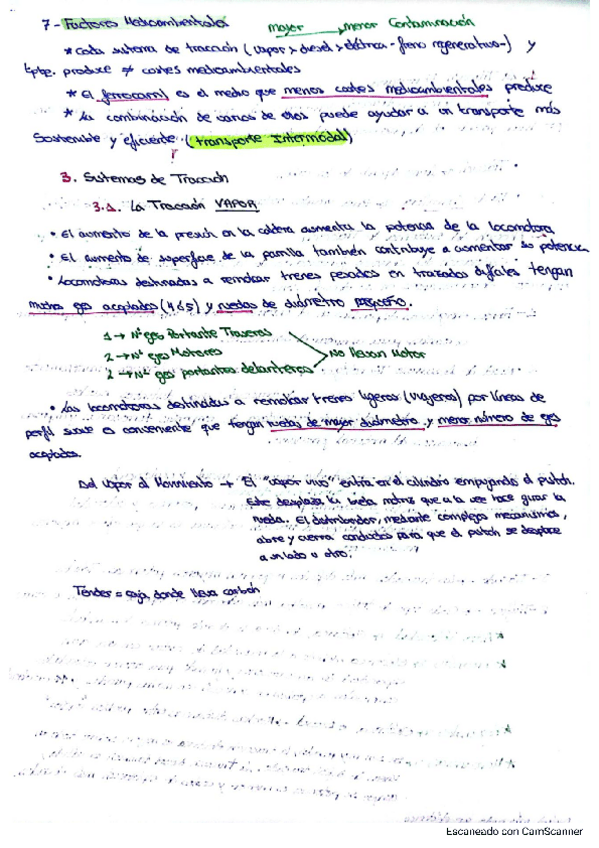 7- Factores Medioambientales mayor → menor Contaminación
* Cada sistema de tracción (vapor > diesel > eléctrica - freno regenerativo-) y
tpte. produce ≠ costes medioambientales
* El ferrocarril es el medio que menos costes medioambientales produce
* La combinación de varios de ellos puede ayudar a un transporte más
Sostenible y eficiente. (transporte Intermodal)
3. Sistemas de Tracción
3.1. La Tracción VAPOR
• El aumento de la presión en la caldera aumenta la potencia de la locomotora
• El aumento de superficie de la parrilla también contribuye a aumentar su potencia
• Locomotoras destinadas a remolcar trenes pesados en trazados difíciles tengan
muchos ejes acoplados (4 ó 5) y ruedas de diámetro PEQUEÑO.
1 → Nº ejes Portante Traseros
2 → Nº ejes Motores
2 → Nº ejes portantes delanteros
No llevan Motor
• Las locomotoras destinadas a remolcar trenes ligeros (viajeros) por líneas de
perfil suave es conveniente que tengan ruedas de mayor diámetro y menor número de ejes
acoplados.
Del Vapor al Movimiento → El "vapor vivo" entra en el cilindro empujando el pistón.
Este desplaza la biela motriz que a la vez hace girar la
rueda. El distribuidor, mediante complejos mecanismos,
abre y cierra conductos para que el pistón se desplace
a un lado u otro.
Tender = caja donde lleva carbón
Escaneado con CamScanner